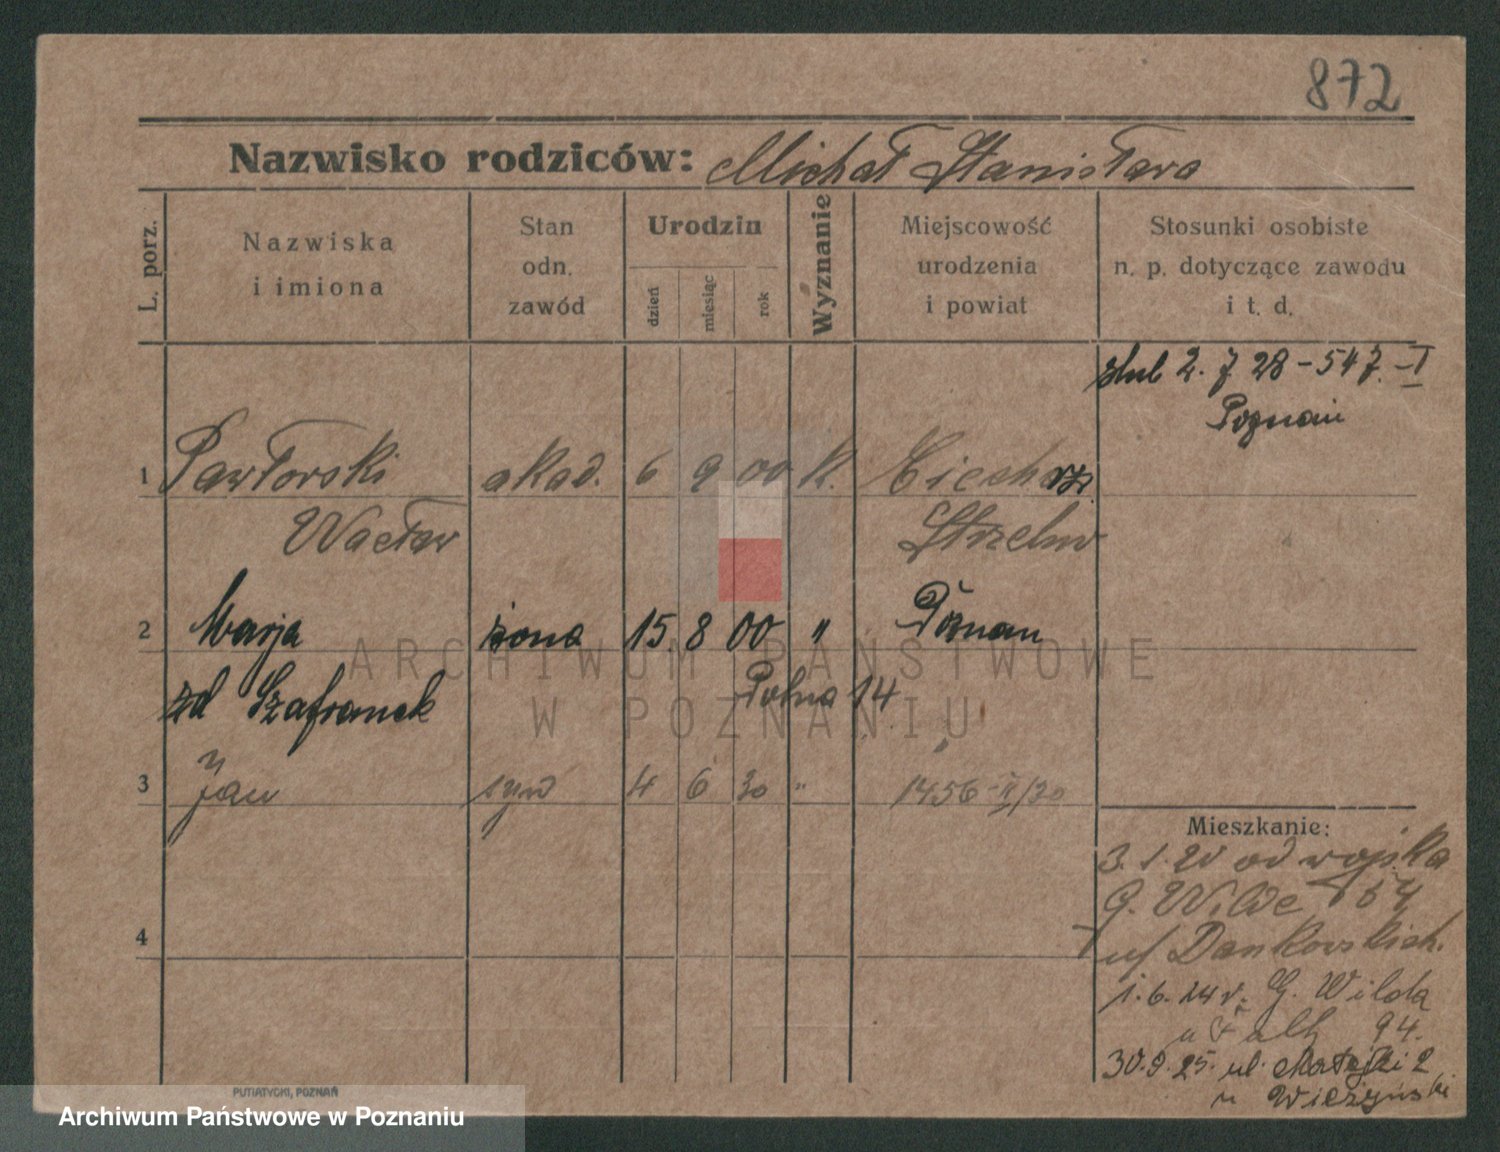 872
Nazwisko rodziców: Michał Stanisława
L. porz.
Nazwiska
i imiona
Stan
odn.
zawód
Urodzin
dzień
miesiąc
rok
Wyznanie
Miejscowość
urodzenia
i powiat
Stosunki osobiste
n. p. dotyczące zawodu
i t. d.
ślub 2. 7 28 - 547. - I
Poznań
1 Pawłorski akad. 6 9 00 K.
Wacław Strzelno
2 Marja żona 15. 8 00 " Poznań
zd Szafranek Polna 14
3 Jan syn 4 6 30 " 1456-II/30
4
Mieszkanie:
3. 1. 20 od wojska
G. Wilde 154
u/ Dankowskich.
1. 6. 24 r. G. Wilda
94.
30. 9. 25. ul. Matejki 2
u Wieżyński
PUTIATYCKI, POZNAŃ
ARCHIWUM PAŃSTWOWE
W POZNANIU
Archiwum Państwowe w Poznaniu